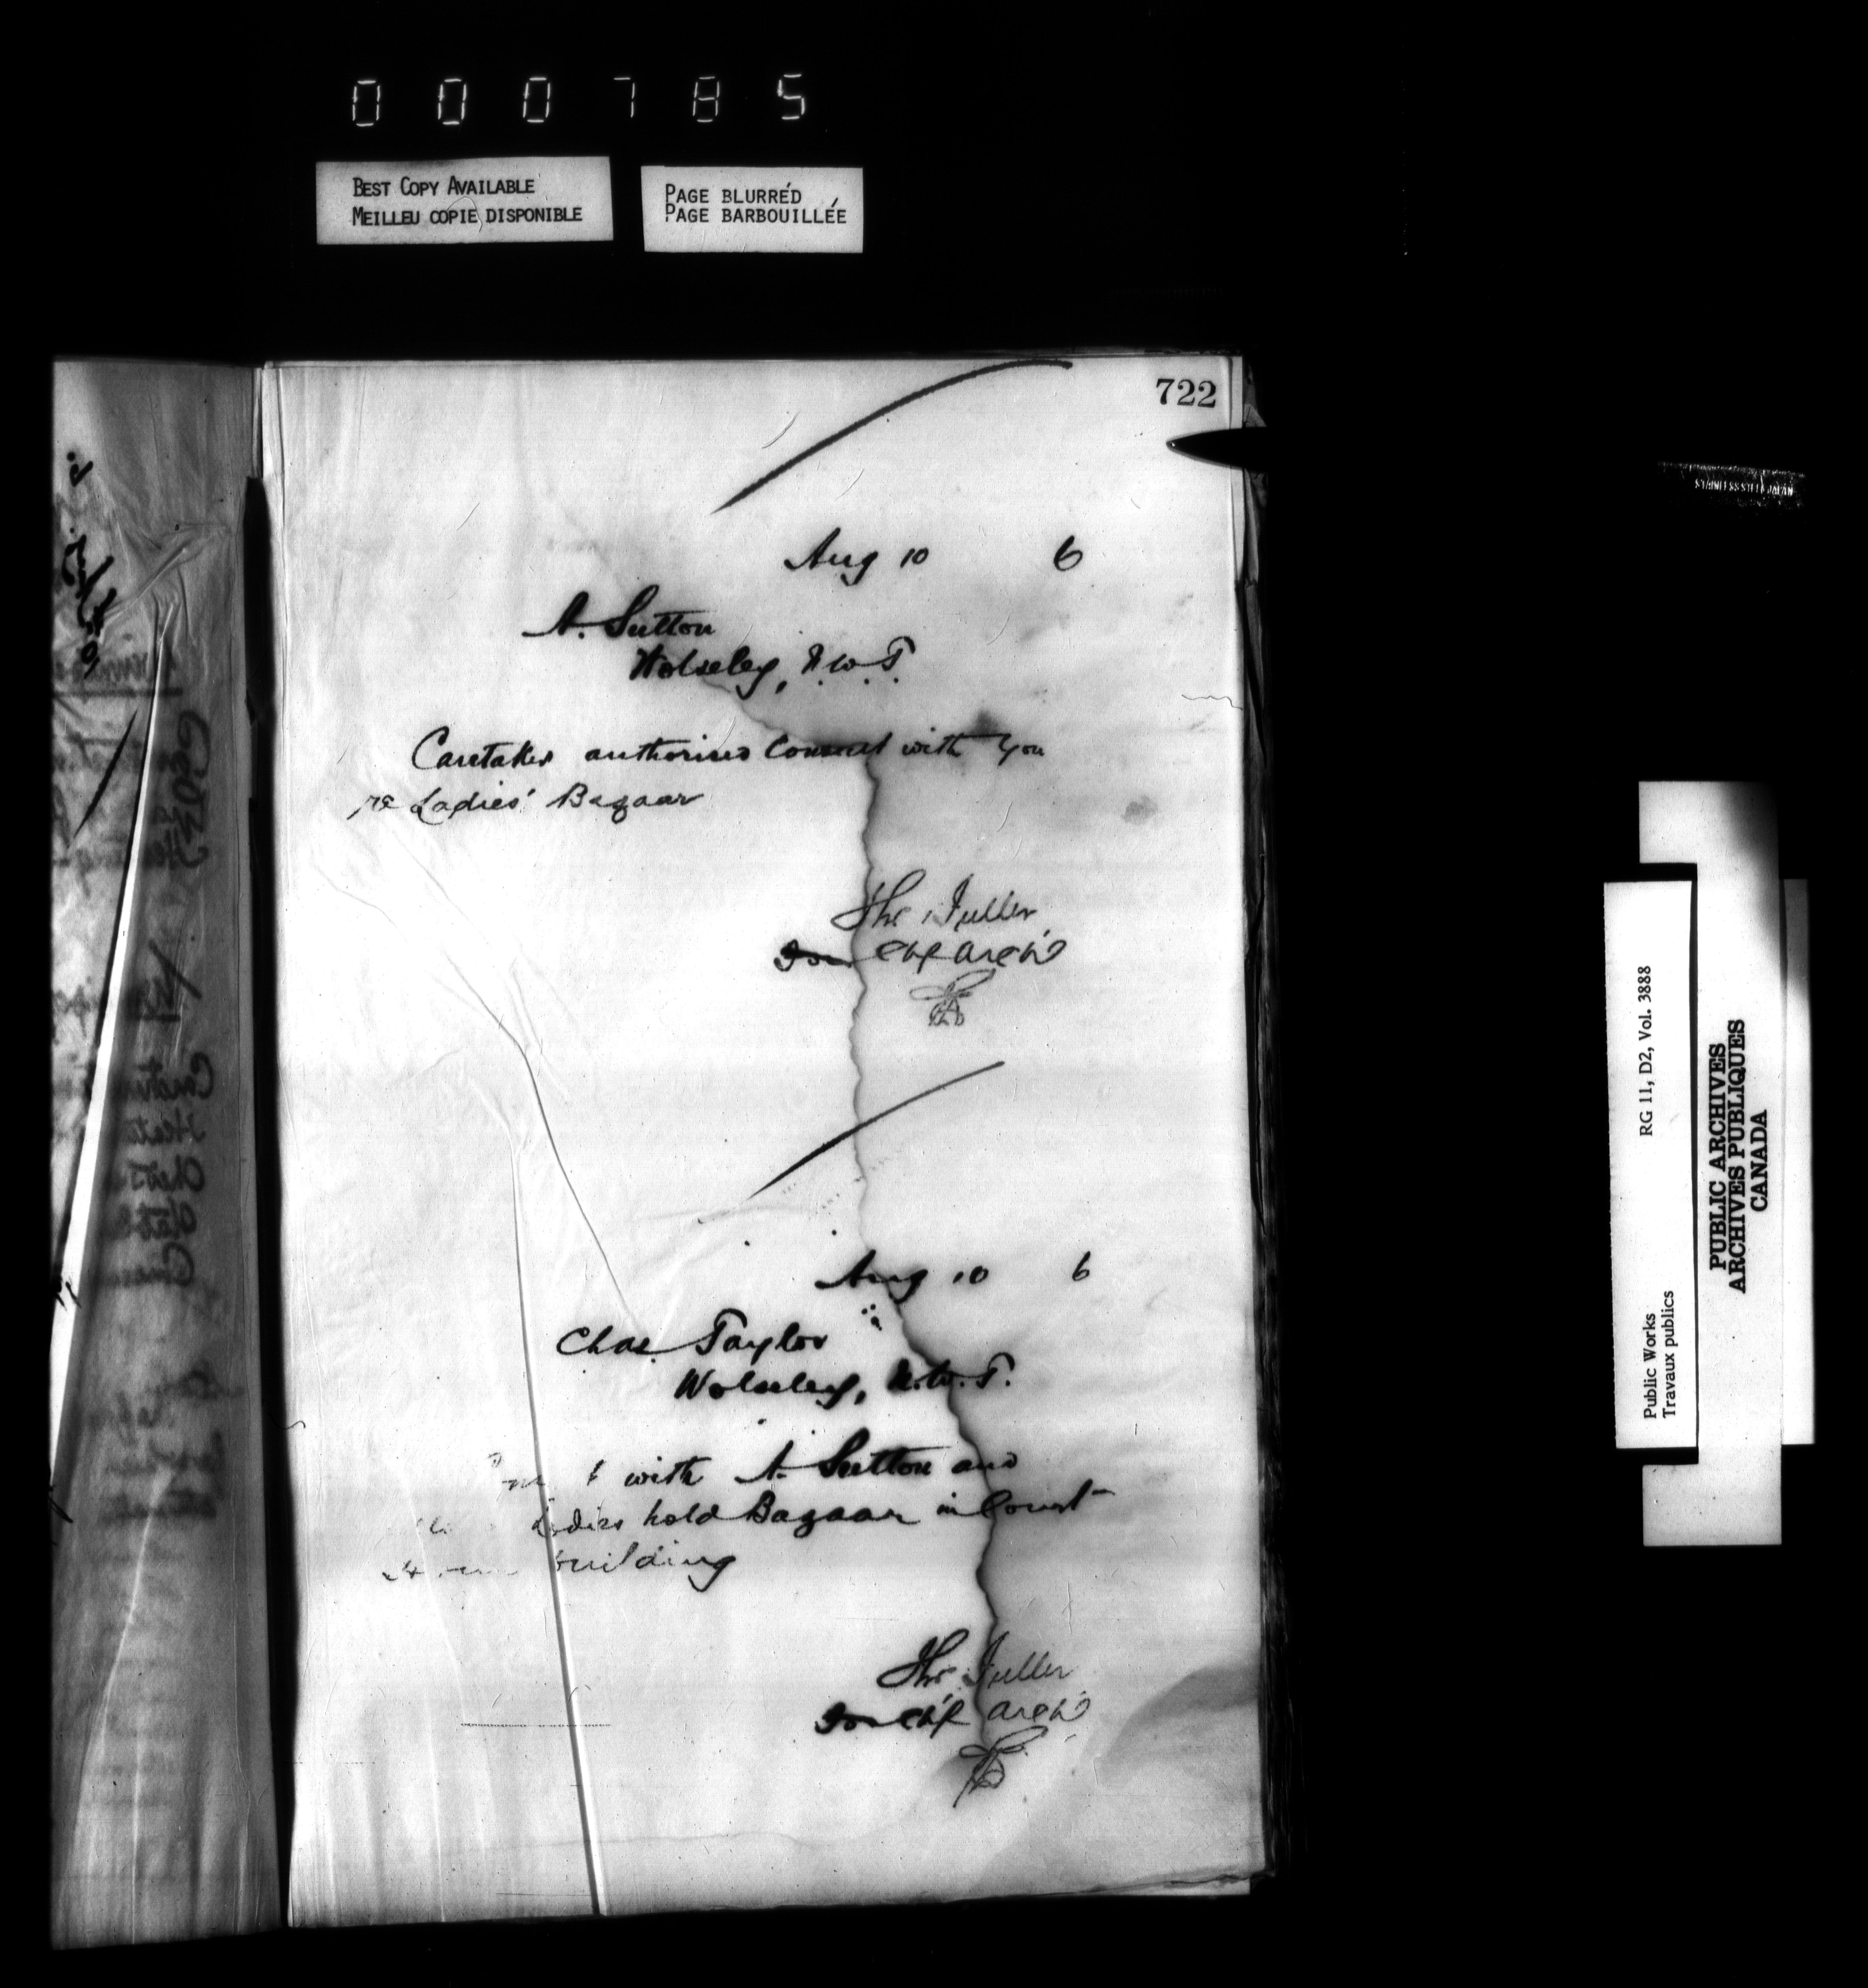 000785
BEST COPY AVAILABLE
MEILLEU COPIE DISPONIBLE
PAGE BLURRÉD
PAGE BARBOUILLÉE
722
Aug 10 6
A. Sutton
Wolseley, N.W.T.
Caretaker authorised Consult with you
re Ladies' Bazaar
Thos Fuller
Ch'f Arch't
Aug 10 6
Chas Taylor
Wolseley, N.W.T.
with A. Sutton and
Ladies hold Bazaar in Court
building
Thos Fuller
Ch'f Arch't
STAINLESS STEEL JAPAN
RG 11, D2, Vol. 3888
Public Works
Travaux publics
PUBLIC ARCHIVES
ARCHIVES PUBLIQUES
CANADA